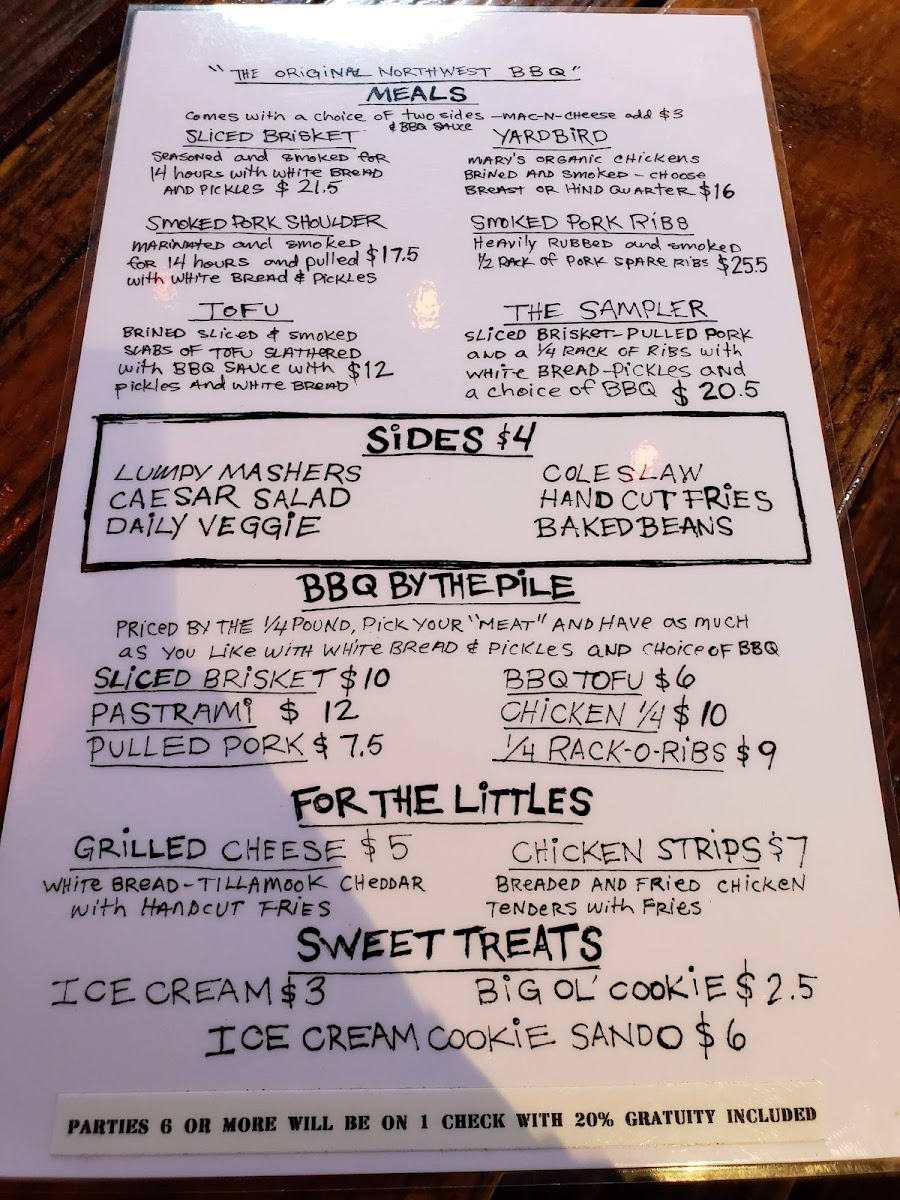 "THE ORIGINAL NORTHWEST BBQ"
MEALS
Comes with a choice of two sides - MAC-N-CHEESE add $3
& BBQ SAUCE
SLICED BRISKET
SEASONED and smoked for
14 hours with WHITE BREAD
AND PICKLES $21.5
YARDBIRD
MARY'S ORGANIC CHICKENS
BRINED AND SMOKED - CHOOSE
BREAST OR HIND QUARTER $16
SMOKED PORK SHOULDER
MARINATED and smoked
for 14 hours and pulled $17.5
with WHITE BREAD & PICKLES
SMOKED PORK RIBS
Heavily RUBBED and smoked
1/2 RACK OF PORK SPARE RIBS $25.5
TOFU
BRINED SLICED & SMOKED
SLABS OF TOFU SLATHERED
with BBQ SAUCE with $12
pickles AND WHITE BREAD
THE SAMPLER
SLICED BRISKET-PULLED PORK
AND a 1/4 RACK OF RIBS with
WHITE BREAD-PICKLES AND
a choice of BBQ $20.5
SIDES $4
LUMPY MASHERS
CAESAR SALAD
DAILY VEGGIE
COLESLAW
HAND CUT FRIES
BAKED BEANS
BBQ BY THE PILE
PRICED BY THE 1/4 POUND, PICK YOUR "MEAT" AND HAVE as much
as YOU LIKE WITH WHITE BREAD & PICKLES AND CHOICE OF BBQ
SLICED BRISKET $10
PASTRAMI $12
PULLED PORK $7.5
BBQ TOFU $6
CHICKEN 1/4 $10
1/4 RACK-O-RIBS $9
FOR THE LITTLES
GRILLED CHEESE $5
WHITE BREAD-TILLAMOOK CHEDDAR
with HANDCUT FRIES
CHICKEN STRIPS $7
BREADED AND FRIED CHICKEN
TENDERS with FRIES
SWEET TREATS
ICE CREAM $3
BIG OL' COOKIE $2.5
ICE CREAM COOKIE SANDO $6
PARTIES 6 OR MORE WILL BE ON 1 CHECK WITH 20% GRATUITY INCLUDED